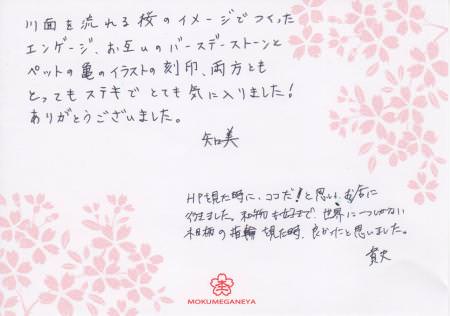 川面を流れる桜のイメージでつくった
エンゲージ、お互いのバースデーストーンと
ペットの亀のイラストの刻印、両方とも
とってもステキでとても気に入りました!
ありがとうございました。
知美
HPを見た時に、ココだ!と思い、お店に
行きました。和物も好きで、世界に一つしかない
木目柄の指輪を見た時、良かったと思いました。
貴史
MOKUMEGANEYA